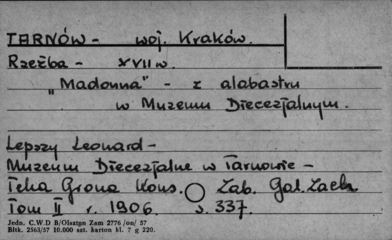 TARNÓW - woj. Kraków.
Rzeźba - XVII w.
„Madonna" - z alabastru
w Muzeum Diecezjalnym.
Lepszy Leonard -
Muzeum Diecezjalne w Tarnowie -
Teka Grona Kons. Zab. Gal. Zach
Tom II r. 1906. s. 337.
Jedn. C.W.D B/Olsztyn Zam 2776/on/ 57
Bltk. 2563/57 10.000 szt. karton kl. 7 g 220.